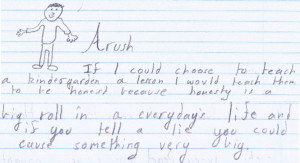 Arush
If I could choose to teach
a kindergarden a lesson I would teach them
to be honest because honesty is a
big roll in a everyday's life and
if you tell a lie you could
cause something very big.